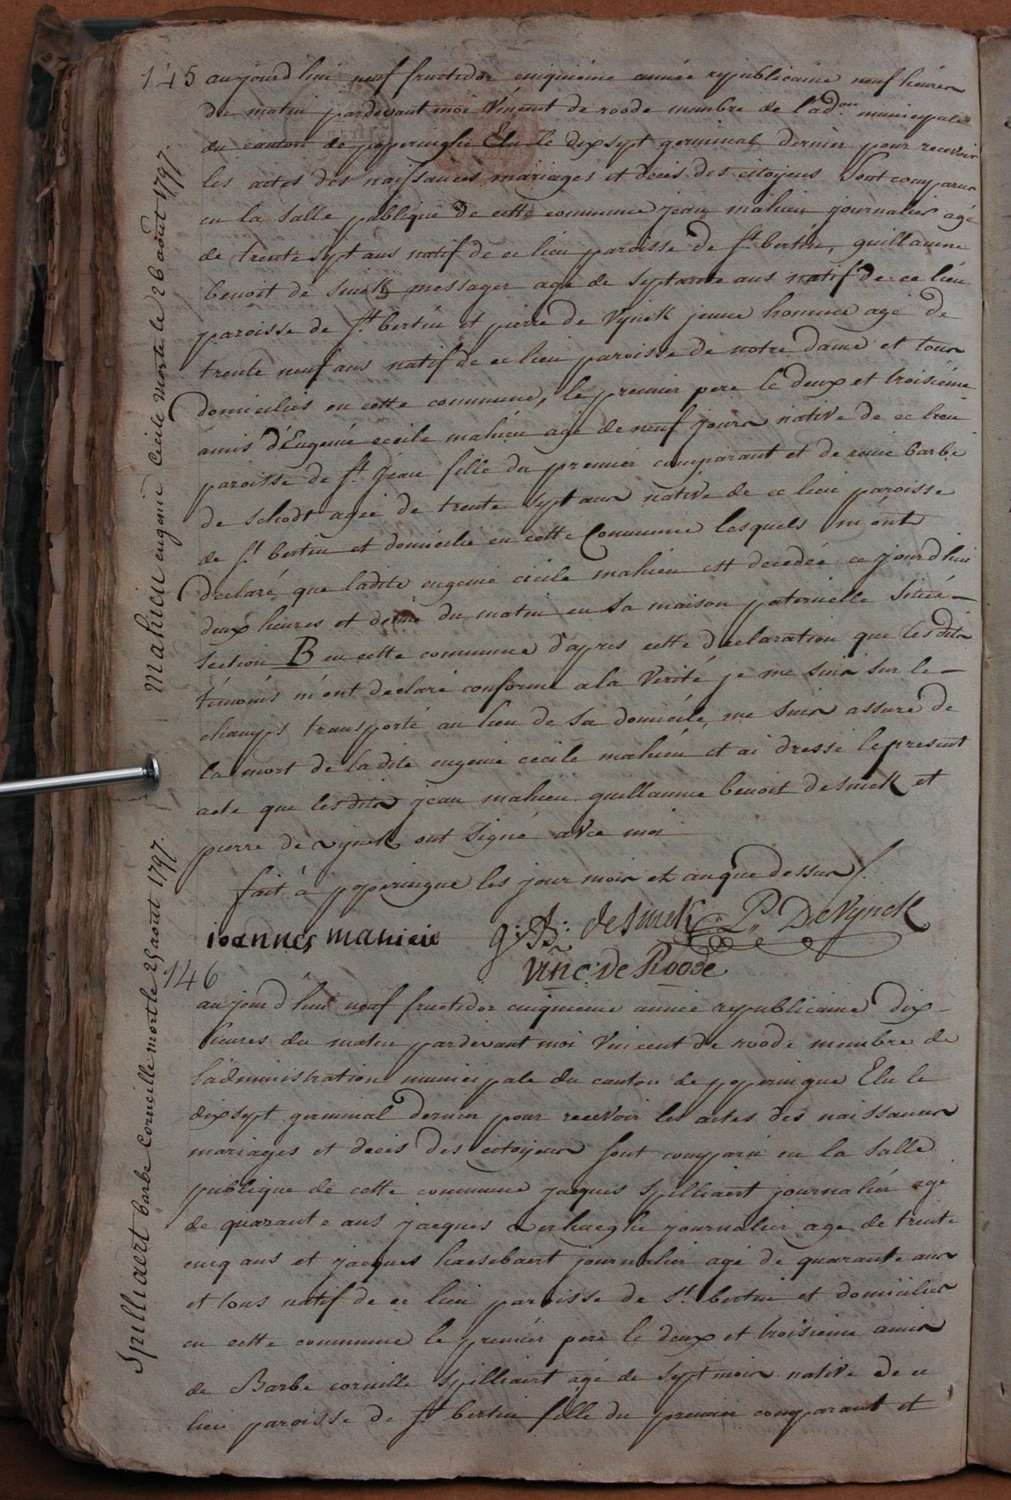 145 aujourd'hui neuf fructidor cinquiéme année republicaine neuf heures
du matin pardevant moi Vincent de roode membre de l'adon. municipale
du canton de poperinghe Elu le dix sept germinal dernier pour recevoir
les actes des naissances mariages et deces des citoyens Sont comparus
en la Salle publique de cette commune jean mahieu journalier agé
de trente sept ans natif de ce lieu paroisse de St. bertin, guillaume
benoit de smick messager agé de septante ans natif de ce lieu
paroisse de St. bertin et pierre de Vynck jeune homme agé de
trente neuf ans natif de ce lieu paroisse de notre dame et tous
domiciliés en cette commune, le premier pere le deux et troisiéme
amis d'Eugenie cecile mahieu agé de neuf jours native de ce lieu
paroisse de St. jean fille du premier comparant et de marie barbe
de schodt agée de trente sept ans native de ce lieu paroisse
de St. bertin et domicilié en cette Commune lesquels m'ont
declaré que ladite eugenie cicile mahieu est decedée ce jourd'hui
deux heures et demi du matin en sa maison paternelle Situé -
Section B en cette commune d'apres cette declaration que lesdits
témoins m'ont declaré conforme a la Verité je me suis sur le -
champs transporté au lieu de sa domicile, me suis assuré de
la mort de ladite eugenie cecile mahieu et ai dressé le present
acte que lesdits jean mahieu guillaume benoit desmick et
pierre de vynck ont Signé avec moi
fait à poperingue les jour mois et an que dessus /.
ioannes mahieu g: B: de Smick P. DeVynck
Vinc: de Roode
146
aujourd'hui neuf fructidor cinquieme année republicaine dix -
heures du matin pardevant moi Vincent de roode membre de
l'administration municipale du canton de poperingue Elu le
dix sept germinal dernier pour recevoir les actes des naissances
mariages et deces des citoyens Sont comparu en la Salle
publique de cette commune jacques Spilliaert journalié agé
de quarante ans jacques verhueghe journalier agé de trente
cincq ans et jacques haesebaert journalier agé de quarante ans
et tous natif de ce lieu paroisse de St. bertin et domicilies
en cette commune le premier pere le deux et troisieme amis
de Barbe corneille Spilliaert agé de sept mois native de ce
lieu paroisse de St. bertin fille du premier comparant et
Mahieu eugenie Cecile Morte le 26 aout 1797.
Spilliaert barbe Corneille morte le 25 aout 1797.